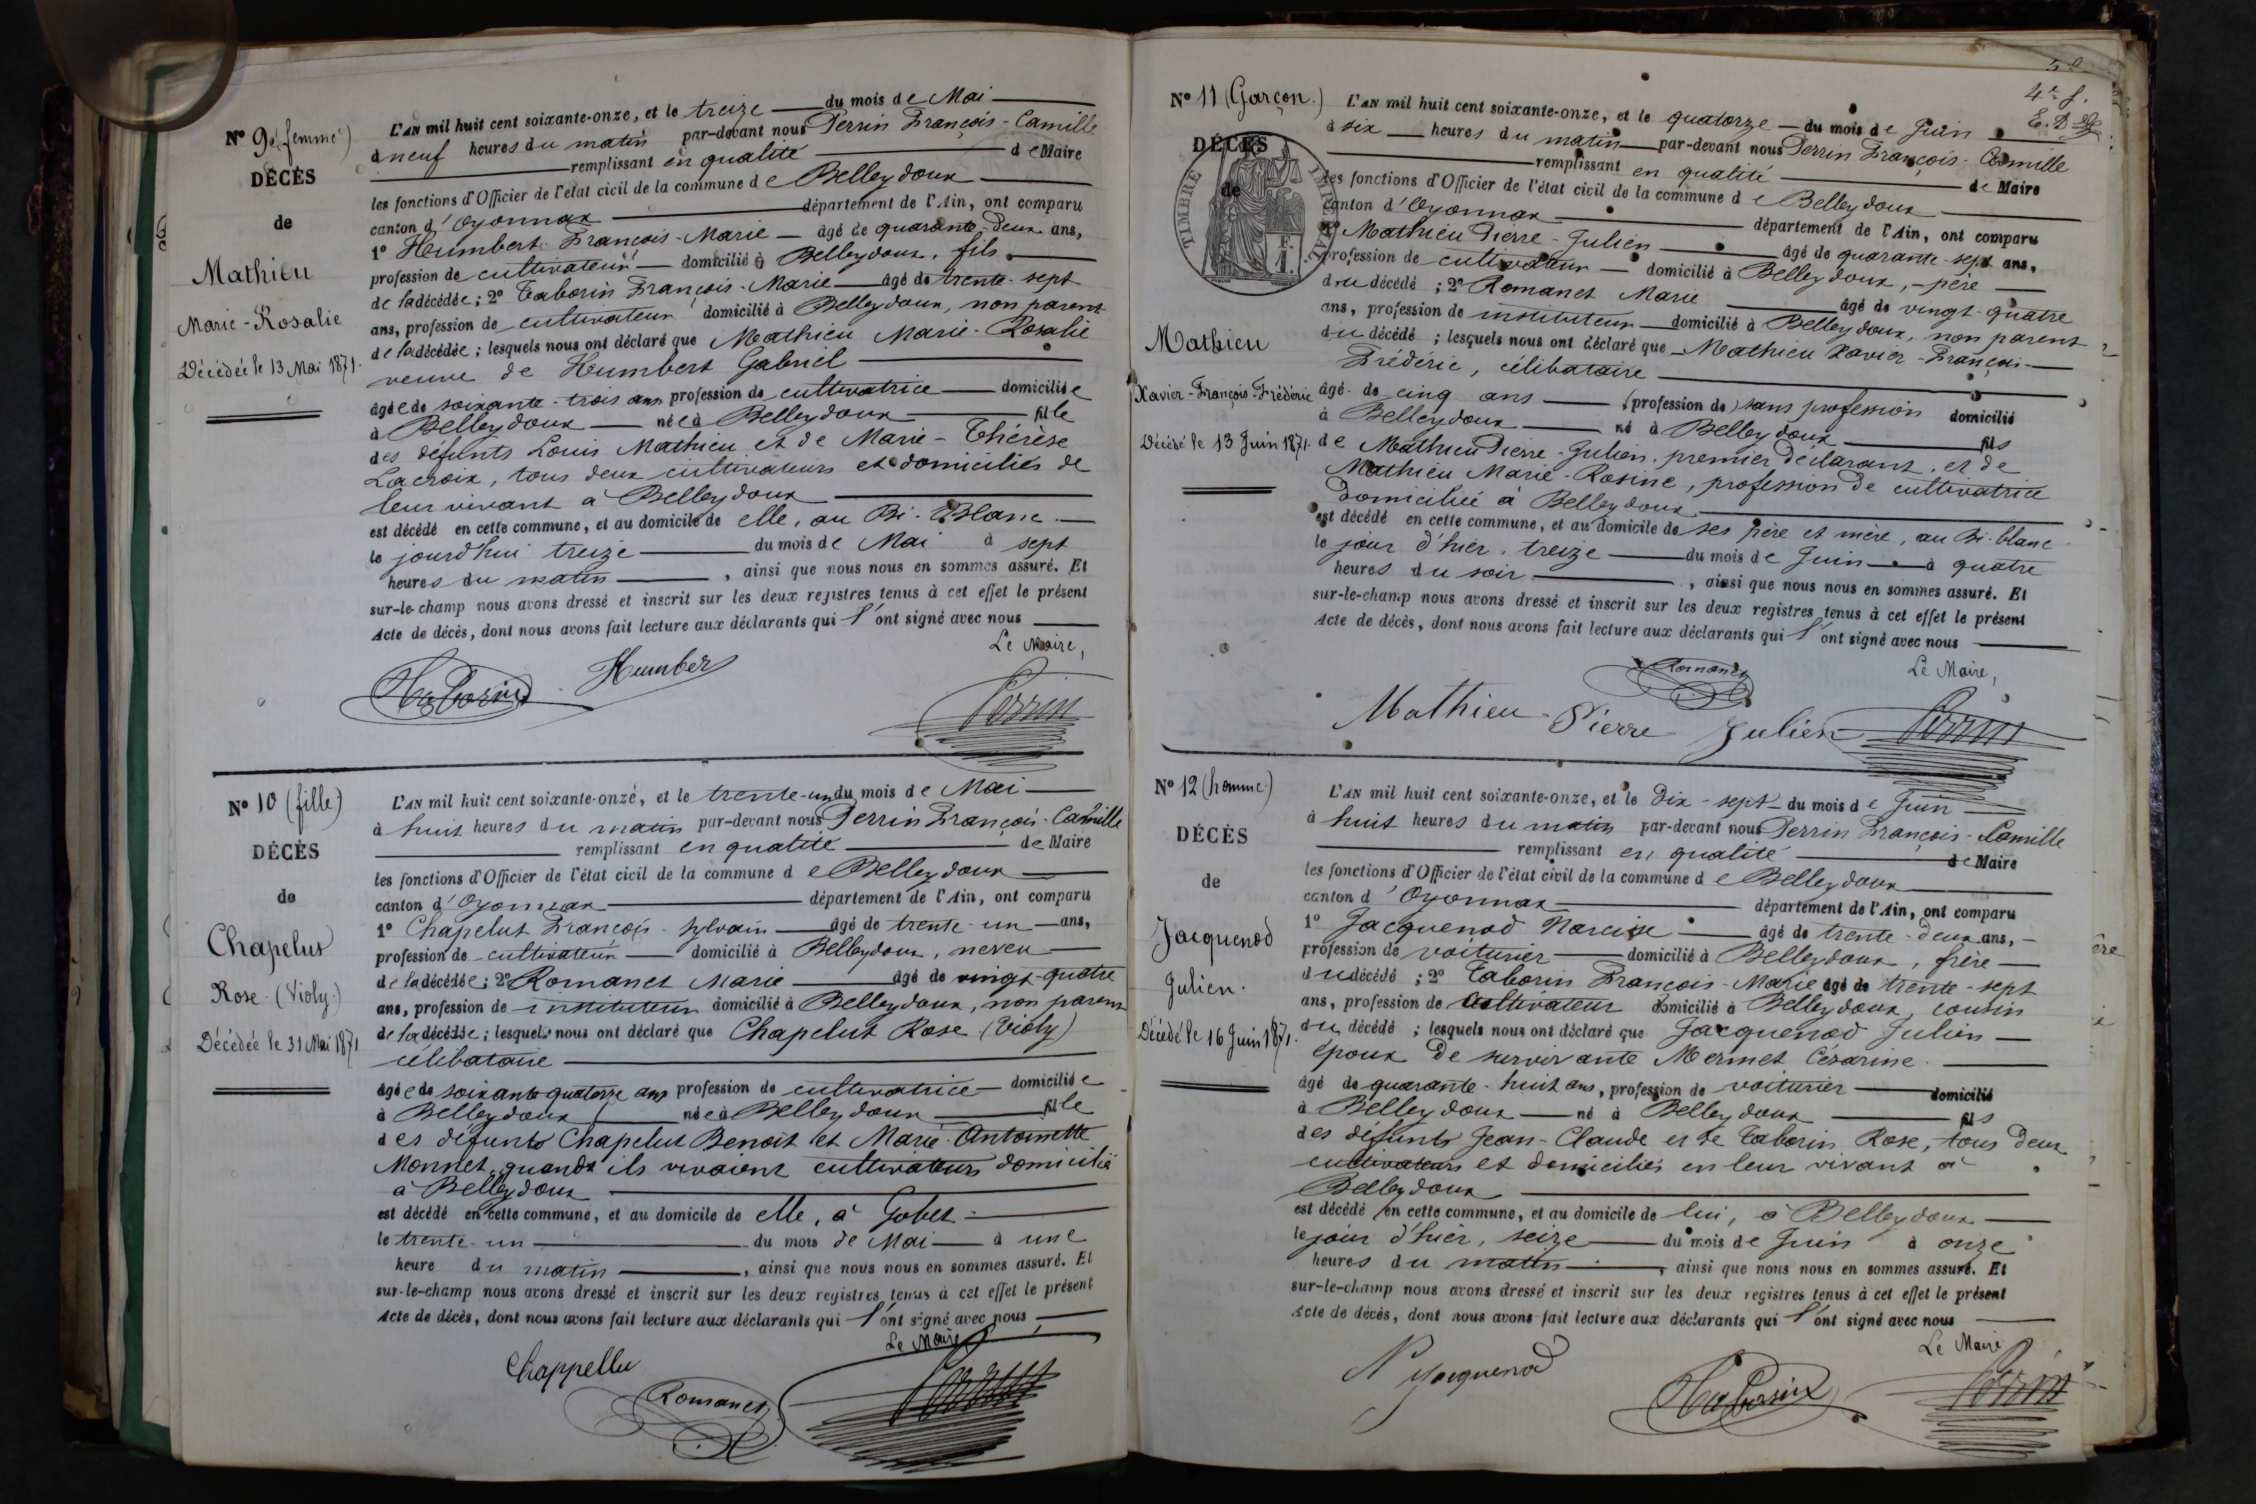 Nº 9 (femme)
DÉCÈS
de
Mathieu
Marie-Rosalie
Décédée le 13 Mai 1871.
L'AN mil huit cent soixante-onze, et le treize du mois de Mai
à neuf heures du matin par-devant nous Perrin François-Camille
remplissant en qualité de Maire
les fonctions d'Officier de l'état civil de la commune de Belleydoux
canton d'Oyonnax département de l'Ain, ont comparu
1º Humbert François-Marie âgé de quarante-deux ans,
profession de cultivateur domicilié à Belleydoux, fils
de la décédée; 2º Taborin François-Marie âgé de trente-sept
ans, profession de cultivateur domicilié à Belleydoux, non parent
de la décédée; lesquels nous ont déclaré que Mathieu Marie-Rosalie
veuve de Humbert Gabriel
âgée de soixante-trois ans profession de cultivatrice domiciliée
à Belleydoux née à Belleydoux fille
des défunts Louis Mathieu et de Marie-Thérèse
Lacroix, tous deux cultivateurs et domiciliés de
leur vivant à Belleydoux
est décédé en cette commune, et au domicile de elle, au Bi-Blanc
le jourd'hui treize du mois de Mai à sept
heures du matin, ainsi que nous nous en sommes assuré. Et
sur-le-champ nous avons dressé et inscrit sur les deux registres tenus à cet effet le présent
Acte de décès, dont nous avons fait lecture aux déclarants qui l'ont signé avec nous
Le Maire,
Taborin Humbert
Perrin
Nº 10 (fille)
DÉCÈS
de
Chapelut
Rose (Violy)
Décédée le 31 Mai 1871
L'AN mil huit cent soixante-onze, et le trente-un du mois de Mai
à huit heures du matin par-devant nous Perrin François-Camille
remplissant en qualité de Maire
les fonctions d'Officier de l'état civil de la commune de Belleydoux
canton d'Oyonnax département de l'Ain, ont comparu
1º Chapelut François-Sylvain âgé de trente-un ans,
profession de cultivateur domicilié à Belleydoux, neveu
de la décédée; 2º Romanet Marie âgé de vingt-quatre
ans, profession de instituteur domicilié à Belleydoux, non parent
de la décédée; lesquels nous ont déclaré que Chapelut Rose (Violy)
célibataire
âgée de soixante quatorze ans profession de cultivatrice domiciliée
à Belleydoux née à Belleydoux fille
des défunts Chapelut Benoit et Marie-Antoinette
Monnet, quands ils vivaient cultivateurs domicilié
à Belleydoux
est décédé en cette commune, et au domicile de elle, à Gobet
le trente-un du mois de Mai à une
heure du matin, ainsi que nous nous en sommes assuré. Et
sur-le-champ nous avons dressé et inscrit sur les deux registres tenus à cet effet le présent
Acte de décès, dont nous avons fait lecture aux déclarants qui l'ont signé avec nous
Le Maire
Chappellu
Romanet
Perrin
4e f.
Nº 11 (Garçon.)
DÉCÈS
de
TIMBRE
Mathieu
Xavier-François-Frédéric
Décédé le 13 Juin 1871.
L'AN mil huit cent soixante-onze, et le quatorze du mois de Juin
à six heures du matin par-devant nous Perrin François-Camille
remplissant en qualité de Maire
les fonctions d'Officier de l'état civil de la commune de Belleydoux
canton d'Oyonnax département de l'Ain, ont comparu
1º Mathieu Pierre-Julien âgé de quarante-sept ans,
profession de cultivateur domicilié à Belleydoux, père
du décédé; 2º Romanet Marie âgé de vingt-quatre
ans, profession de instituteur domicilié à Belleydoux, non parent
du décédé; lesquels nous ont déclaré que Mathieu Xavier-François-
Frédéric, célibataire
âgé de cinq ans (profession de) sans profession domicilié
à Belleydoux né à Belleydoux fils
de Mathieu Pierre-Julien, premier déclarant, et de
Mathieu Marie-Rosine, profession de cultivatrice
Domiciliée à Belleydoux
est décédé en cette commune, et au domicile de ses père et mère, au Bi-blanc
le jour d'hier, treize du mois de Juin à quatre
heures du soir, ainsi que nous nous en sommes assuré. Et
sur-le-champ nous avons dressé et inscrit sur les deux registres tenus à cet effet le présent
Acte de décès, dont nous avons fait lecture aux déclarants qui l'ont signé avec nous
Le Maire,
Romanet
Mathieu Pierre Julien Perrin
Nº 12 (homme)
DÉCÈS
de
Jacquenod
Julien.
Décédé le 16 Juin 1871.
L'AN mil huit cent soixante-onze, et le Dix-sept du mois de Juin
à huit heures du matin par-devant nous Perrin François-Camille
remplissant en qualité de Maire
les fonctions d'Officier de l'état civil de la commune de Belleydoux
canton d'Oyonnax département de l'Ain, ont comparu
1º Jacquenod Narcisse âgé de trente-deux ans,
profession de voiturier domicilié à Belleydoux, frère
du décédé; 2º Taborin François-Marie âgé de trente-sept
ans, profession de cultivateur domicilié à Belleydoux, cousin
du décédé; lesquels nous ont déclaré que Jacquenod Julien
époux de survivante Mermet Césarine
âgé de quarante-huit ans, profession de voiturier domicilié
à Belleydoux né à Belleydoux fils
des défunts Jean-Claude et de Taborin Rose, tous deux
cultivateurs et domiciliés en leur vivant à
Belleydoux
est décédé en cette commune, et au domicile de lui, à Belleydoux
le jour d'hier, seize du mois de Juin à onze
heures du matin, ainsi que nous nous en sommes assuré. Et
sur-le-champ nous avons dressé et inscrit sur les deux registres tenus à cet effet le présent
Acte de décès, dont nous avons fait lecture aux déclarants qui l'ont signé avec nous
Le Maire
N Jacquenod
Taborin
Perrin